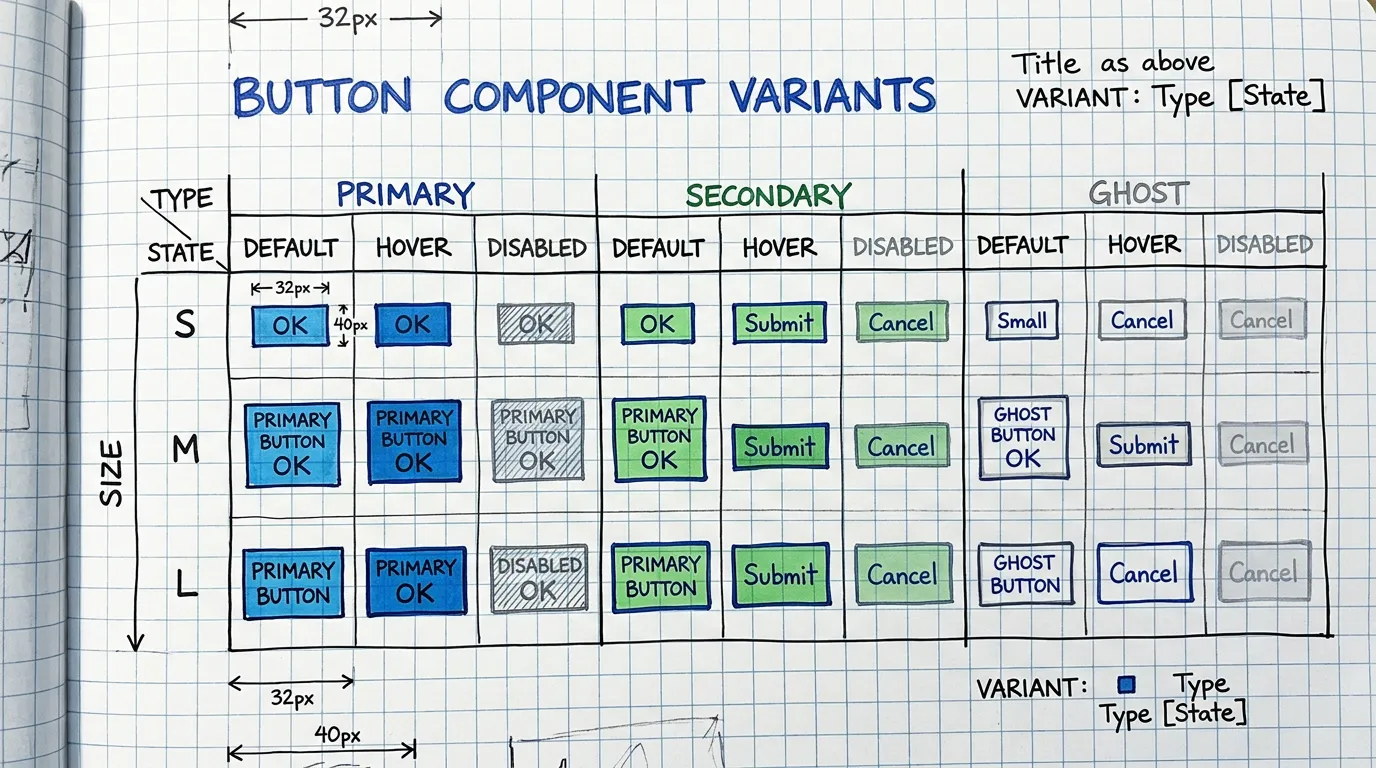 32px
BUTTON COMPONENT VARIANTS
Title as above
VARIANT: Type [State]
TYPE
STATE
PRIMARY
SECONDARY
GHOST
DEFAULT HOVER DISABLED DEFAULT HOVER DISABLED DEFAULT HOVER DISABLED
SIZE
32px
40px
S OK OK OK OK Submit Cancel Small Cancel Cancel
M
PRIMARY
BUTTON
OK
PRIMARY
BUTTON
OK
PRIMARY
BUTTON
OK
PRIMARY
BUTTON
OK
Submit
Cancel
GHOST
BUTTON
OK
Submit
Cancel
L
PRIMARY
BUTTON
PRIMARY
OK
DISABLED
OK
PRIMARY
BUTTON
Submit
Cancel
GHOST
BUTTON
Cancel
Cancel
32px
40px
VARIANT: Type
Type [State]